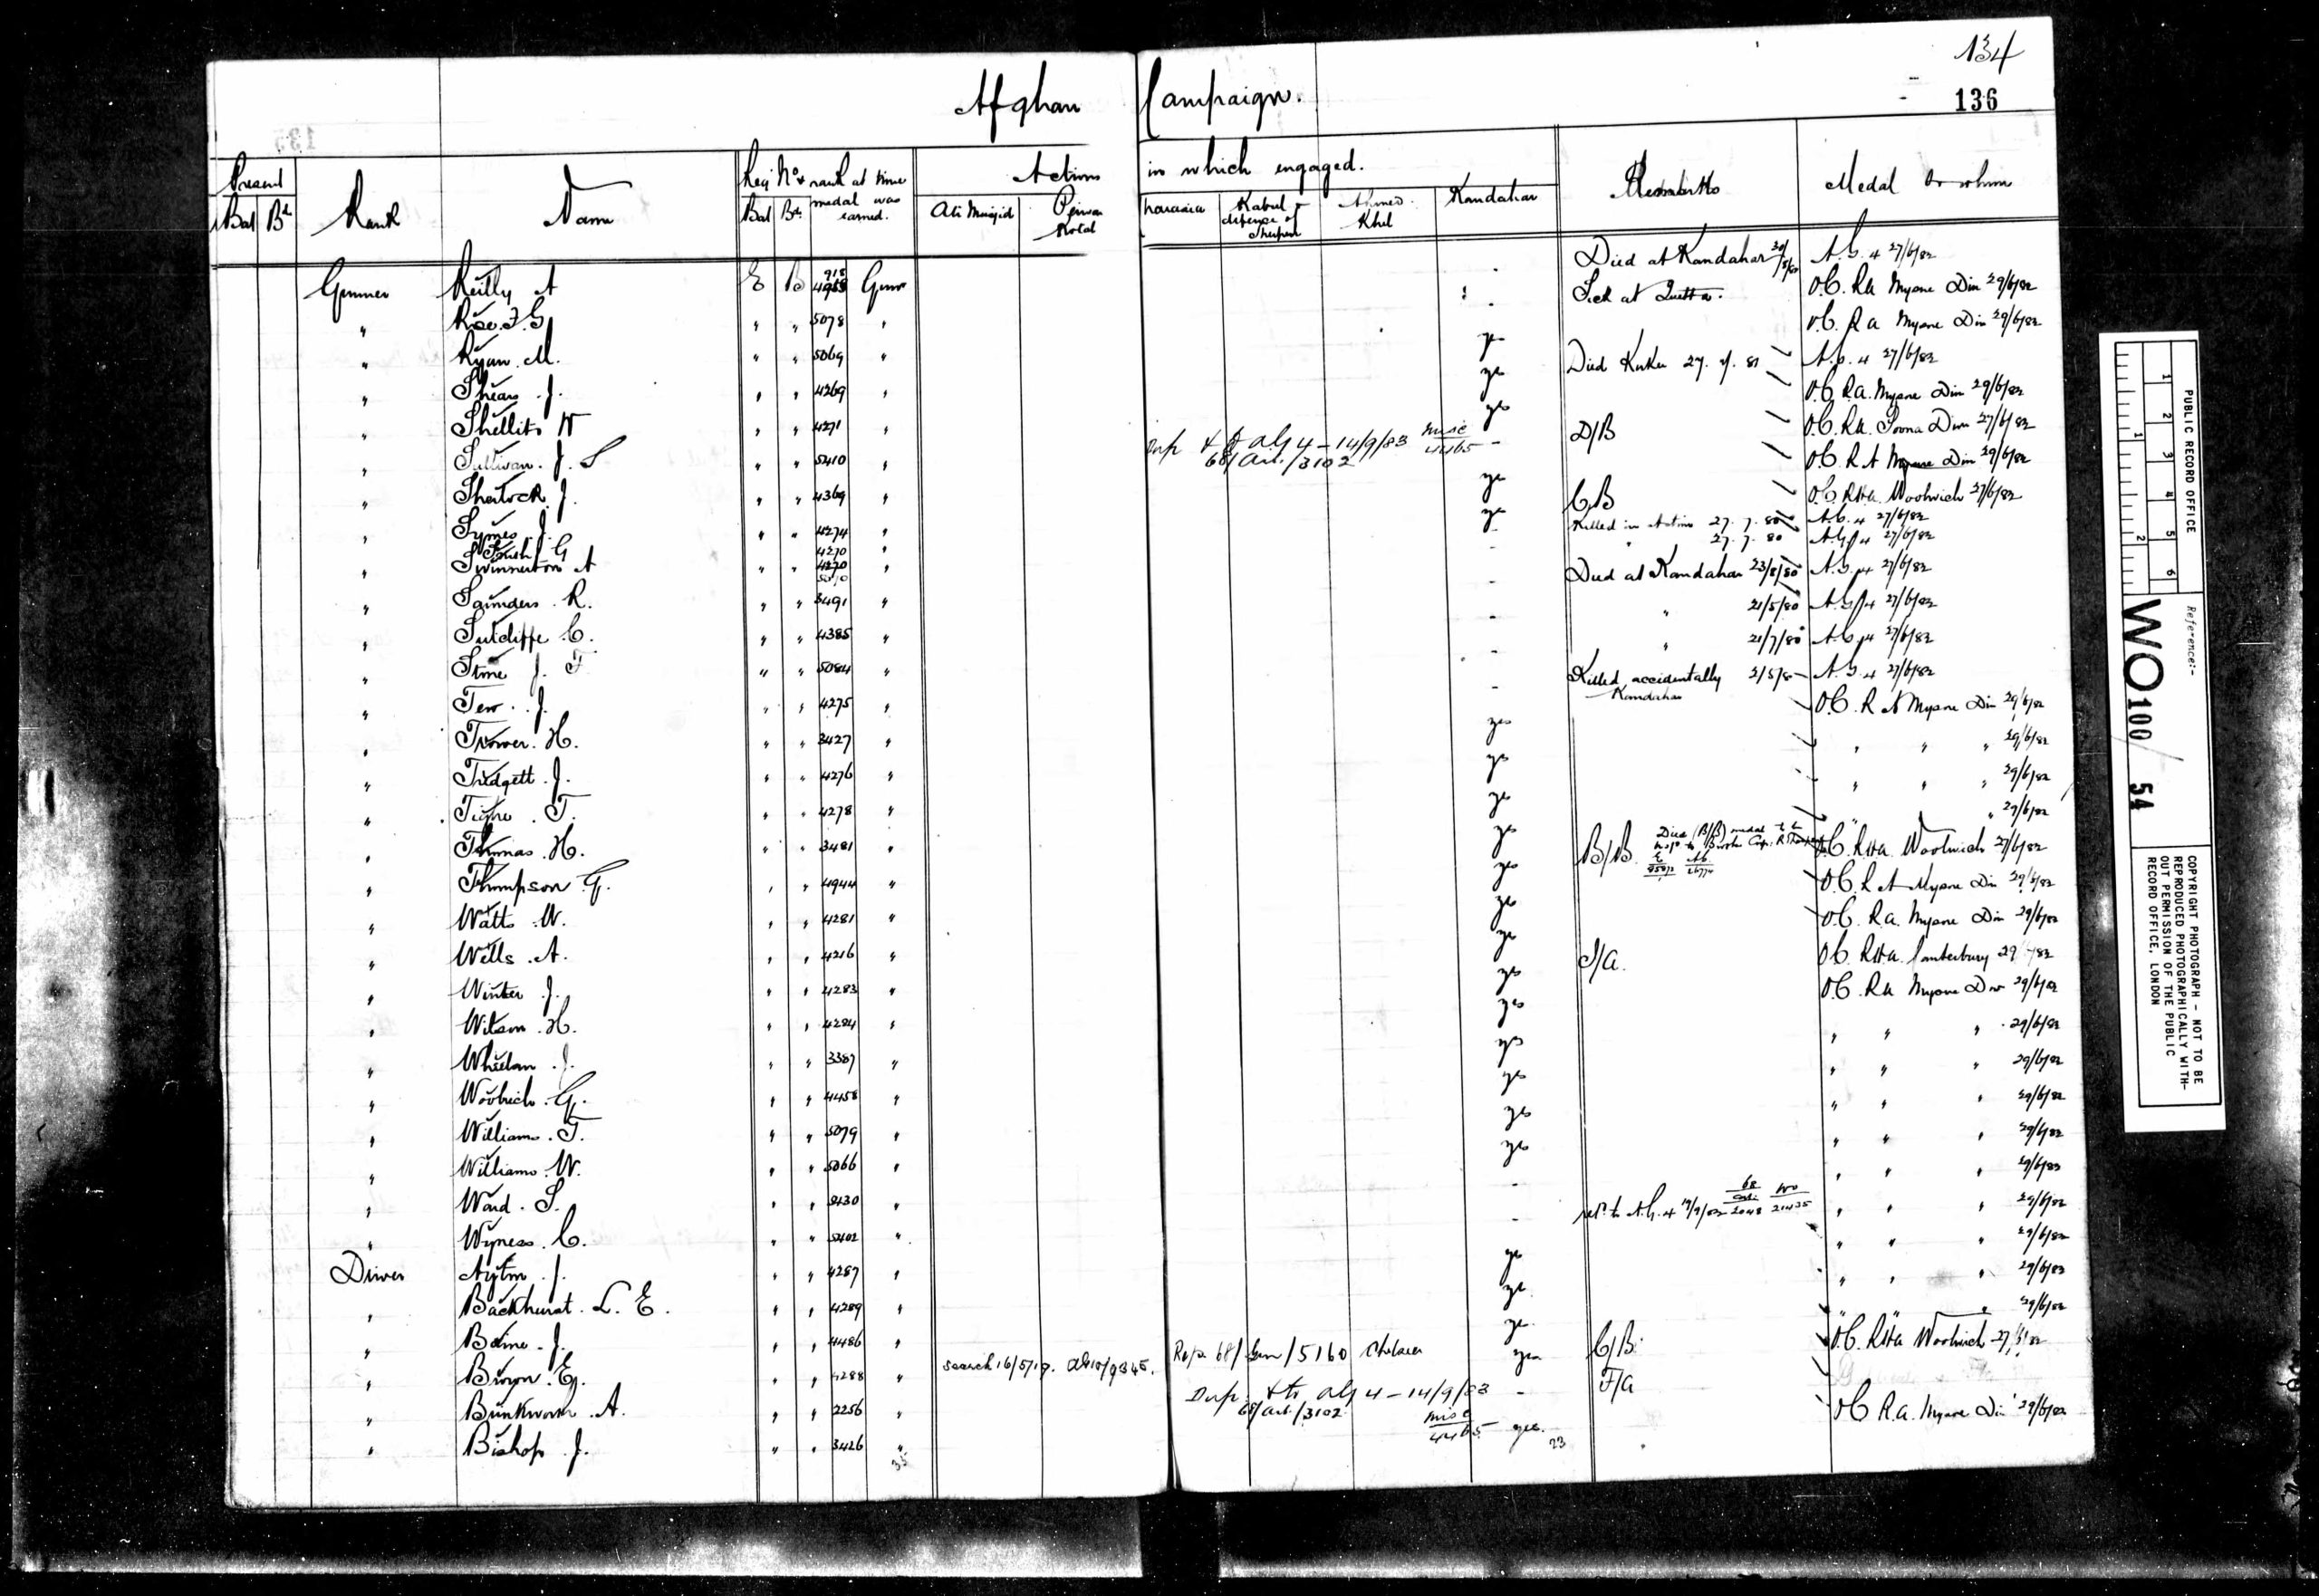 134
Afghan Campaign.
136
Present
Rank
Name
Reg Nº & rank at time medal was earned.
Actions in which engaged.
Remarks
Medal to whom
Bat Bde
Bat Bde
Ali Musjid
Peiwar Kotal
Charasia
Kabul & defence of Sherpur
Ahmed Khel
Kandahar
Gunner Reilly A E B 4958 Gunr - Died at Kandahar A.G. 4 27/6/82
" Roe. F. G " " 5078 " - Sick at Quetta. O.C. RA Mysore Divn 29/6/82
" Ryan. M. " " 5069 " yes O.C. RA Mysore Divn 29/6/82
" Shears. J. " " 4269 " yes Died 27. 81 A.G. 4 27/6/82
" Shellito W " " 4271 " yes O.C. R.A. Mysore Divn 29/6/82
" Sullivan. J. S " " 5410 " Dup & to AG 4 - 14/9/83 misc 4465 - D/B O.C. R.A. Poona Divn 27/6/82
68/Art./3102
" Sherlock. J. " " 4369 " yes O.C. R A Mysore Divn 29/6/82
" Symes. J. " " 4274 " yes C/B O.C. RHA. Woolwich 27/6/82
Smith G 4270 " Killed in Action 27. 7. 80 A.G. 4 27/6/82
" Swinnerton A " " " - " 27. 7. 80 A.G. 4 27/6/82
" Saunders. R. " " 3491 " - Died at Kandahar 23/8/80 A.G. 4 27/6/82
" Sutcliffe C. " " 4385 " - " 21/5/80 A.G. 4 27/6/82
" Stone J. F " " 5084 " - " 21/7/80 A.G. 4 27/6/82
" Tew. J. " " 4275 " - Killed accidentally Kandahar A.G. 4 27/6/82
" Trower. H. " " 3427 " yes O.C. R A Mysore Divn 29/6/82
" Tredgett. J. " " 4276 " yes " " " 29/6/82
" T. " " 4278 " yes " " " 29/6/82
" Thomas. H. " " 3481 " yes " " 29/6/82
" Thompson G. " " 4944 " yes B/B. Died (B/B) medal O.C. RHA. Woolwich 27/6/82
" Watts. W. " " 4281 " yes O.C. R A Mysore Divn 29/6/82
" Wells. A. " " 4216 " yes O.C. R.A. Mysore Divn 29/6/82
" Winter J. " " 4283 " yes I/A. O.C. RHA. Canterbury 29/6/82
" Wilson. H. " " 4284 " yes O.C. RA Mysore Divn 29/6/82
" Whelan. J. " " 3387 " yes " " " 29/6/82
" Woolrich. G. " " 4458 " yes " " " 29/6/82
" Williams. T. " " 5079 " yes " " " 29/6/82
" Williams. W. " " 5066 " yes " " " 29/6/82
" Ward. S. " " 5430 " - " " " 29/6/82
" Wyness. C. " " 5402 " - ret. to A.G. 4 " " " 29/6/82
Driver J. " " 4287 " yes " " " 29/6/82
" Backhurst. L. E. " " 4289 " yes " " " 29/6/82
" J. " " 4486 " yes " " 29/6/82
" Brown. E. " " 4288 " search 16/5/19. Rep 68/Gen/5160 Chelsea yes C/B. O.C. RHA Woolwich 27/6/82
" Bunkworth. A. " " 2256 " Dup. & to AG 4 - 14/9/83 - F/A
68/Art./3102 misc 4465
" Bishop J. " " 3426 " yes. O.C. R.A. Mysore Divn 29/6/82
35
23
PUBLIC RECORD OFFICE
Reference:-
WO 100 / 54
COPYRIGHT PHOTOGRAPH - NOT TO BE
REPRODUCED PHOTOGRAPHICALLY WITH-
OUT PERMISSION OF THE PUBLIC
RECORD OFFICE, LONDON